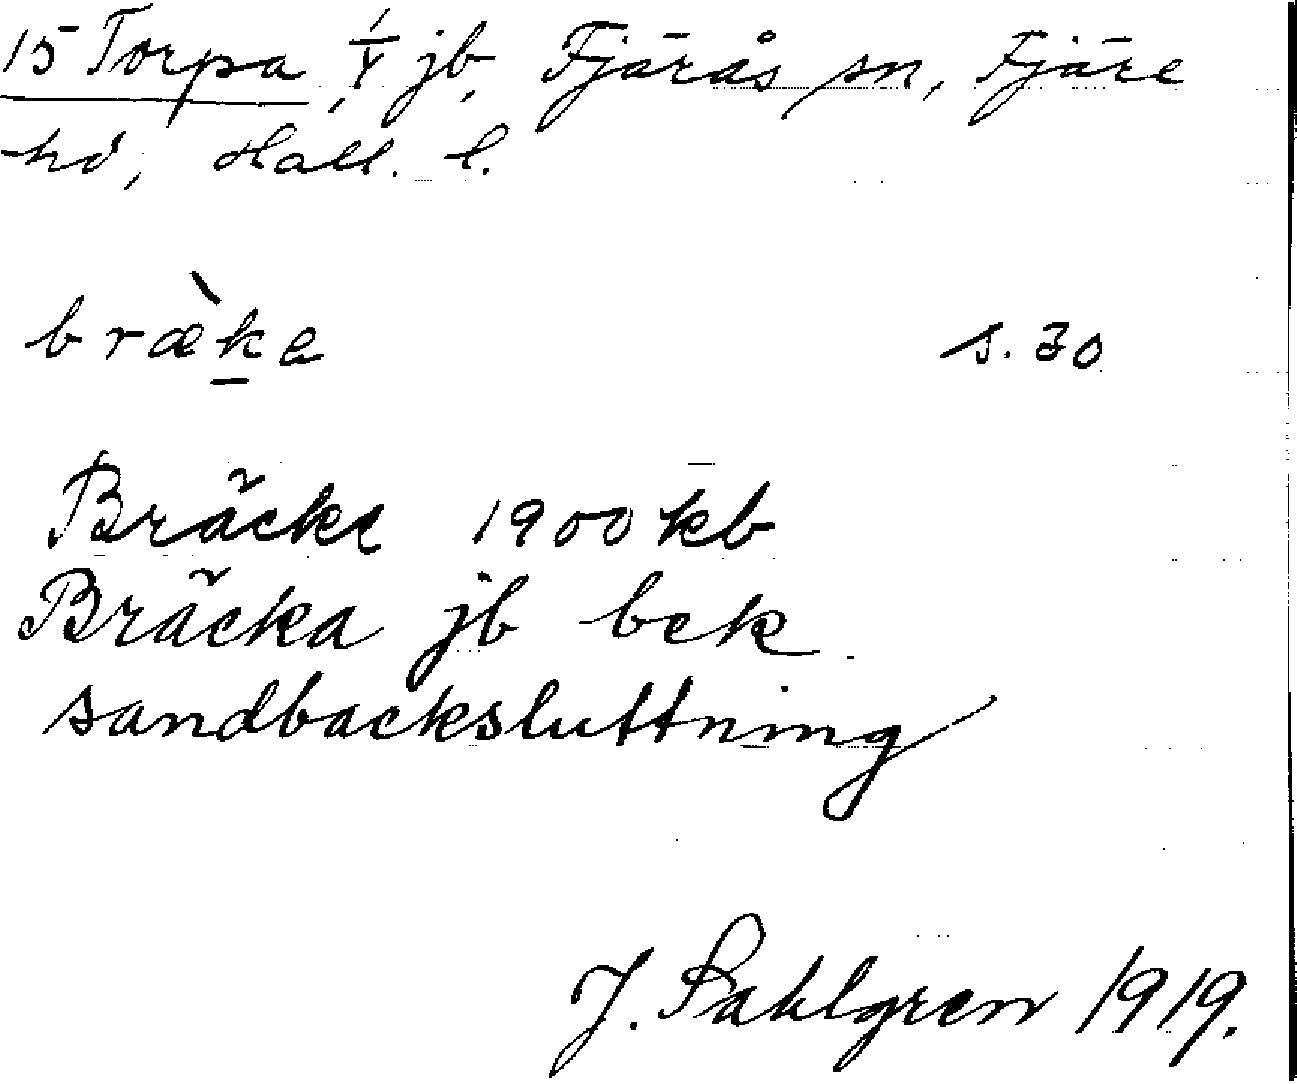 15 Torpa, 1/1 jb, Fjärås sn, Fjäre
hd, Hall. l.
bræ̀ke s. 30
Bräcke 1900 kb
Bräcka jb bek
sandbacksluttning
J. Sahlgren 1919.